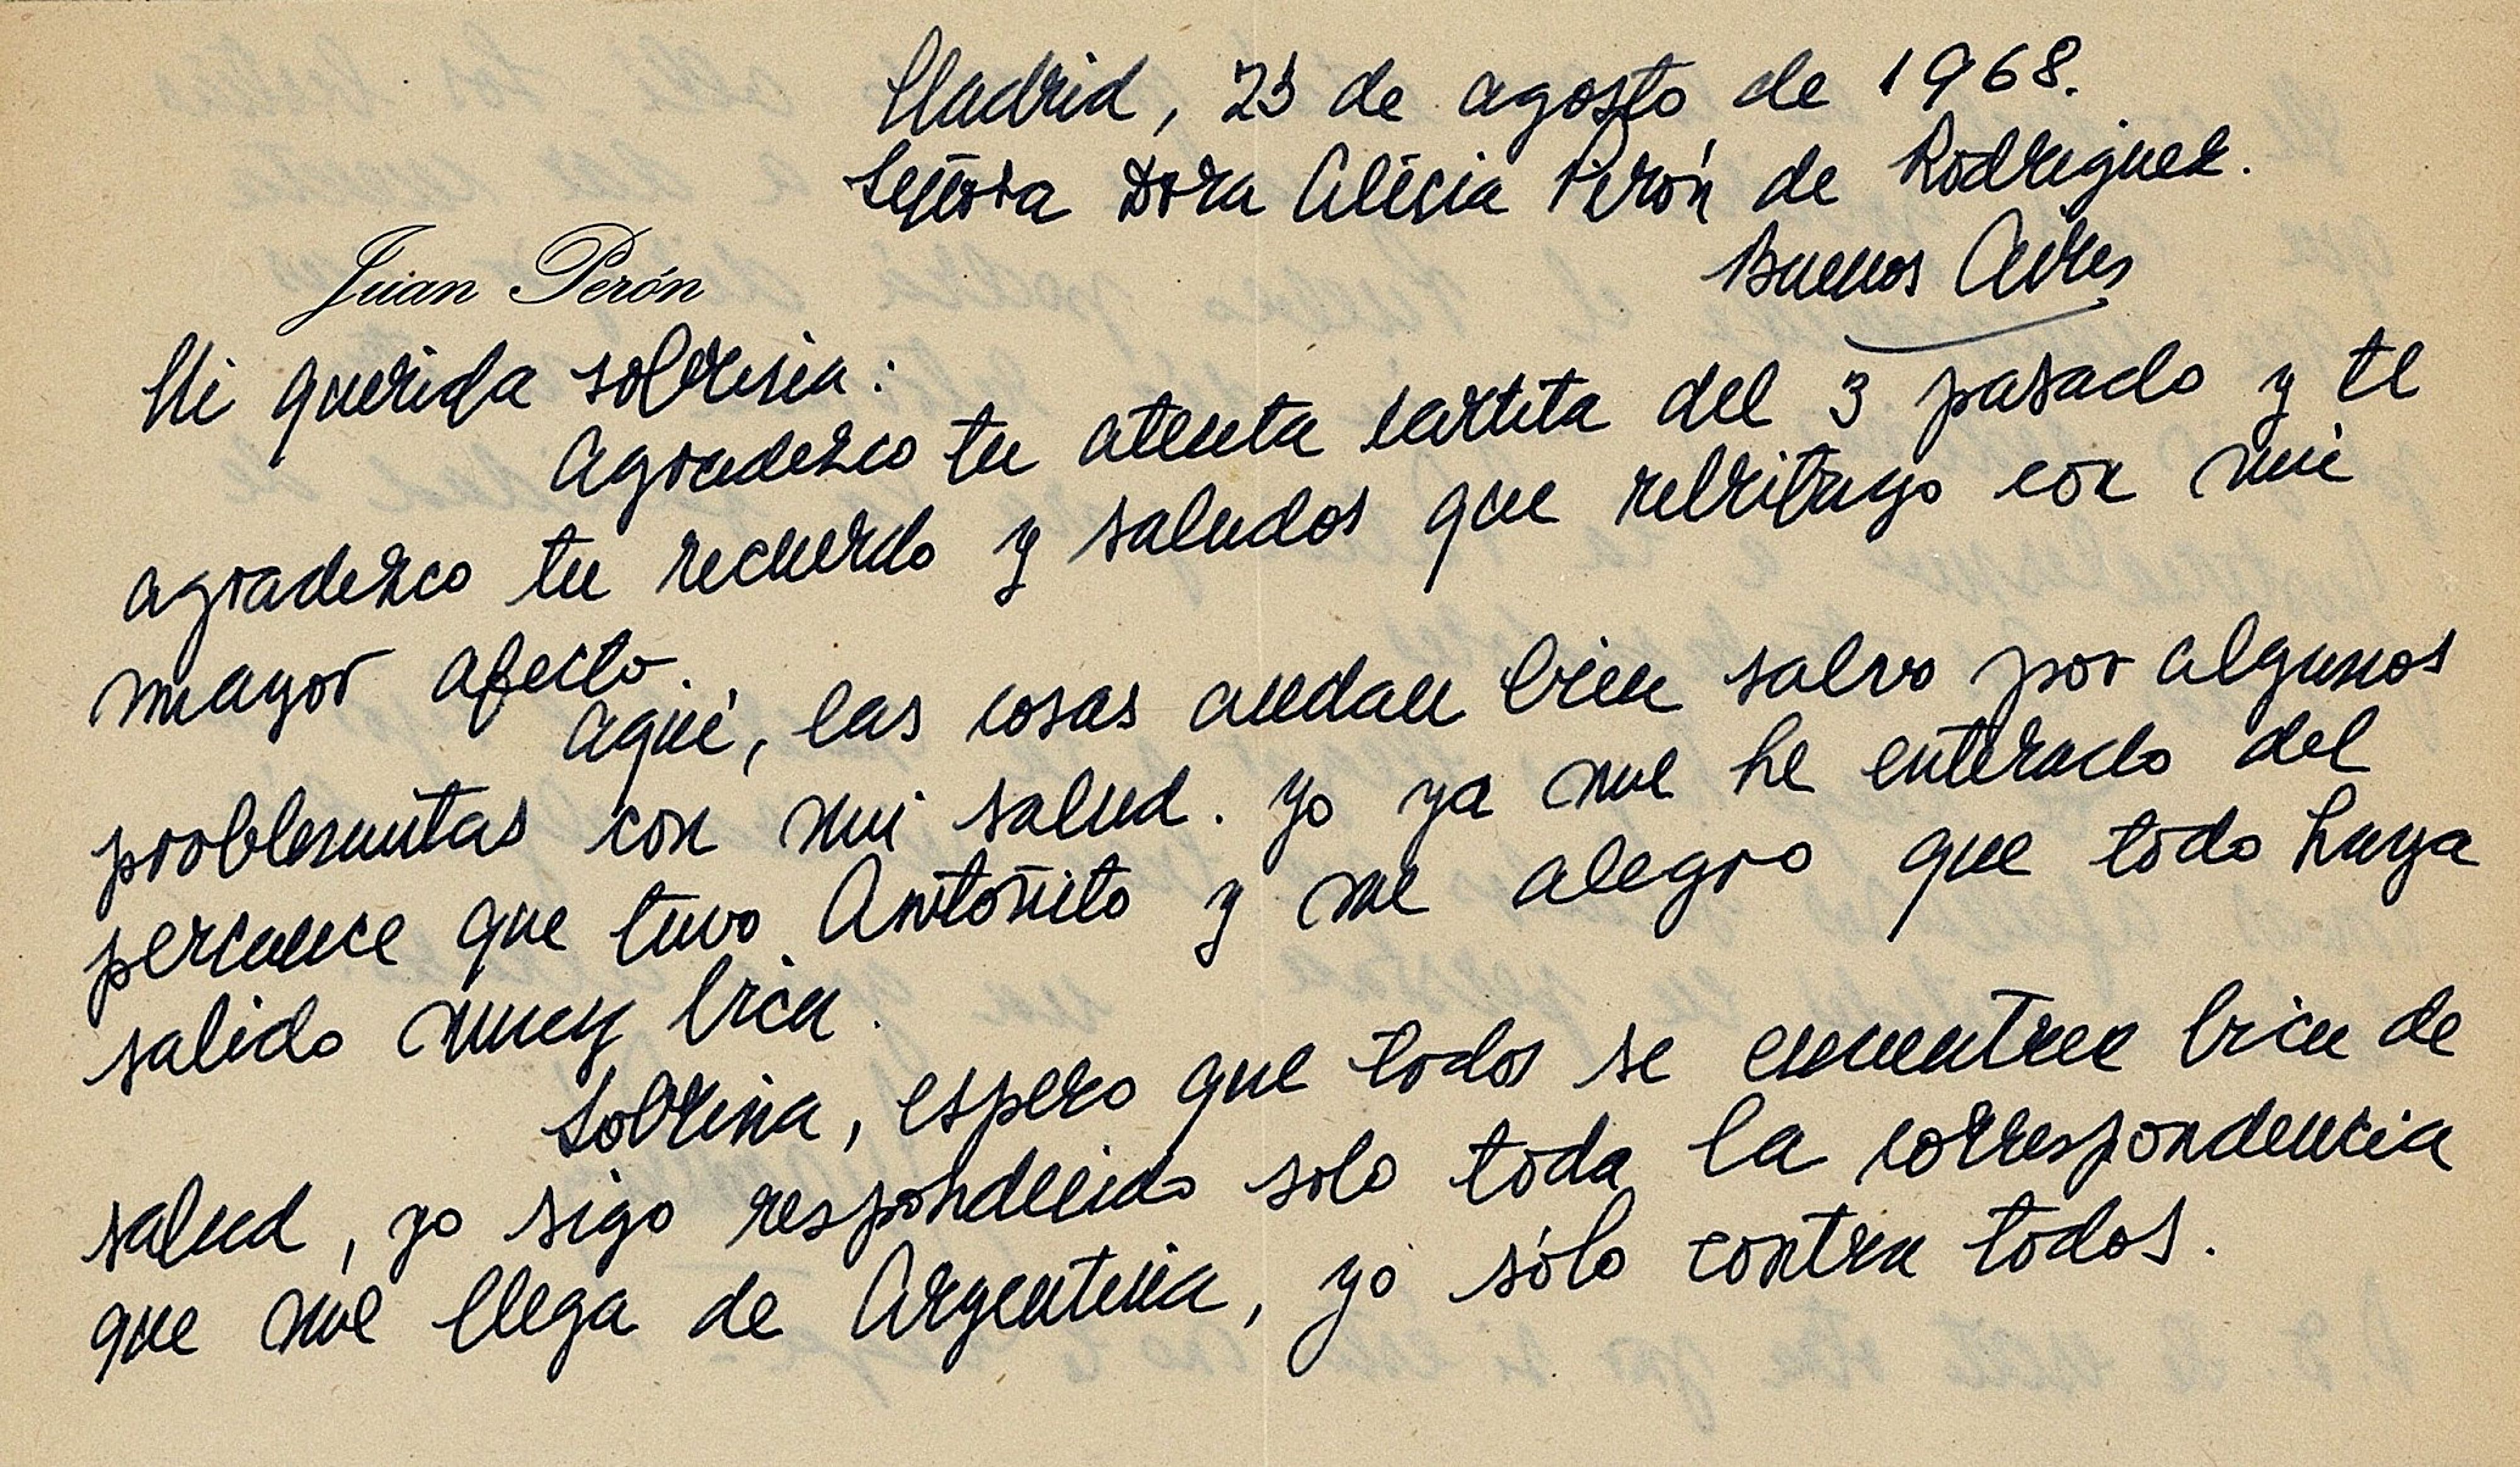 Madrid, 23 de agosto de 1968.
Señora Dora Alicia Perón de Rodriguez.
Buenos Aires
Juan Perón
Mi querida sobrina:
Agradezco tu atenta cartita del 3 pasado y te
agradezco tu recuerdo y saludos que retribuyo con mi
mayor afecto.
Aquí, las cosas andan bien salvo por algunos
problemitas con mi salud. Yo ya me he enterado del
percance que tuvo Antoñito y me alegro que todo haya
salido muy bien.
Sobrina, espero que todos se encuentren bien de
salud, yo sigo respondiendo solo toda la correspondencia
que me llega de Argentina, yo sólo contra todos.